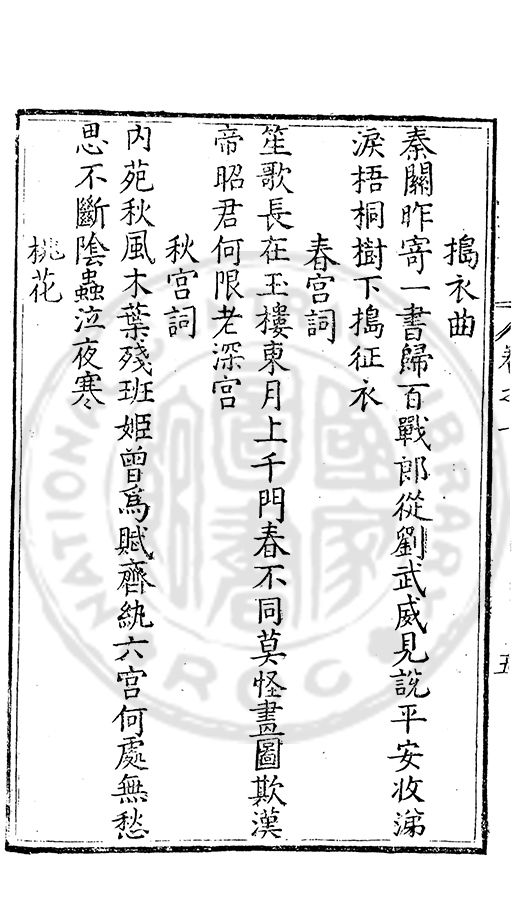 搗衣曲
秦關昨寄一書歸百戰郎從劉武威見說平安收涕
淚捂桐樹下搗征衣
春宫詞
笙歌長在玉樓東月上千門春不同莫怪畫圖欺漢
帝昭君何限老深宫
秋宫詞
內苑秋風木葉殘班姬曾爲賦齊紈六宫何處無愁
思不斷陰蟲泣夜寒
桃花
卷之一
五
NATIONAL
LIBRARY